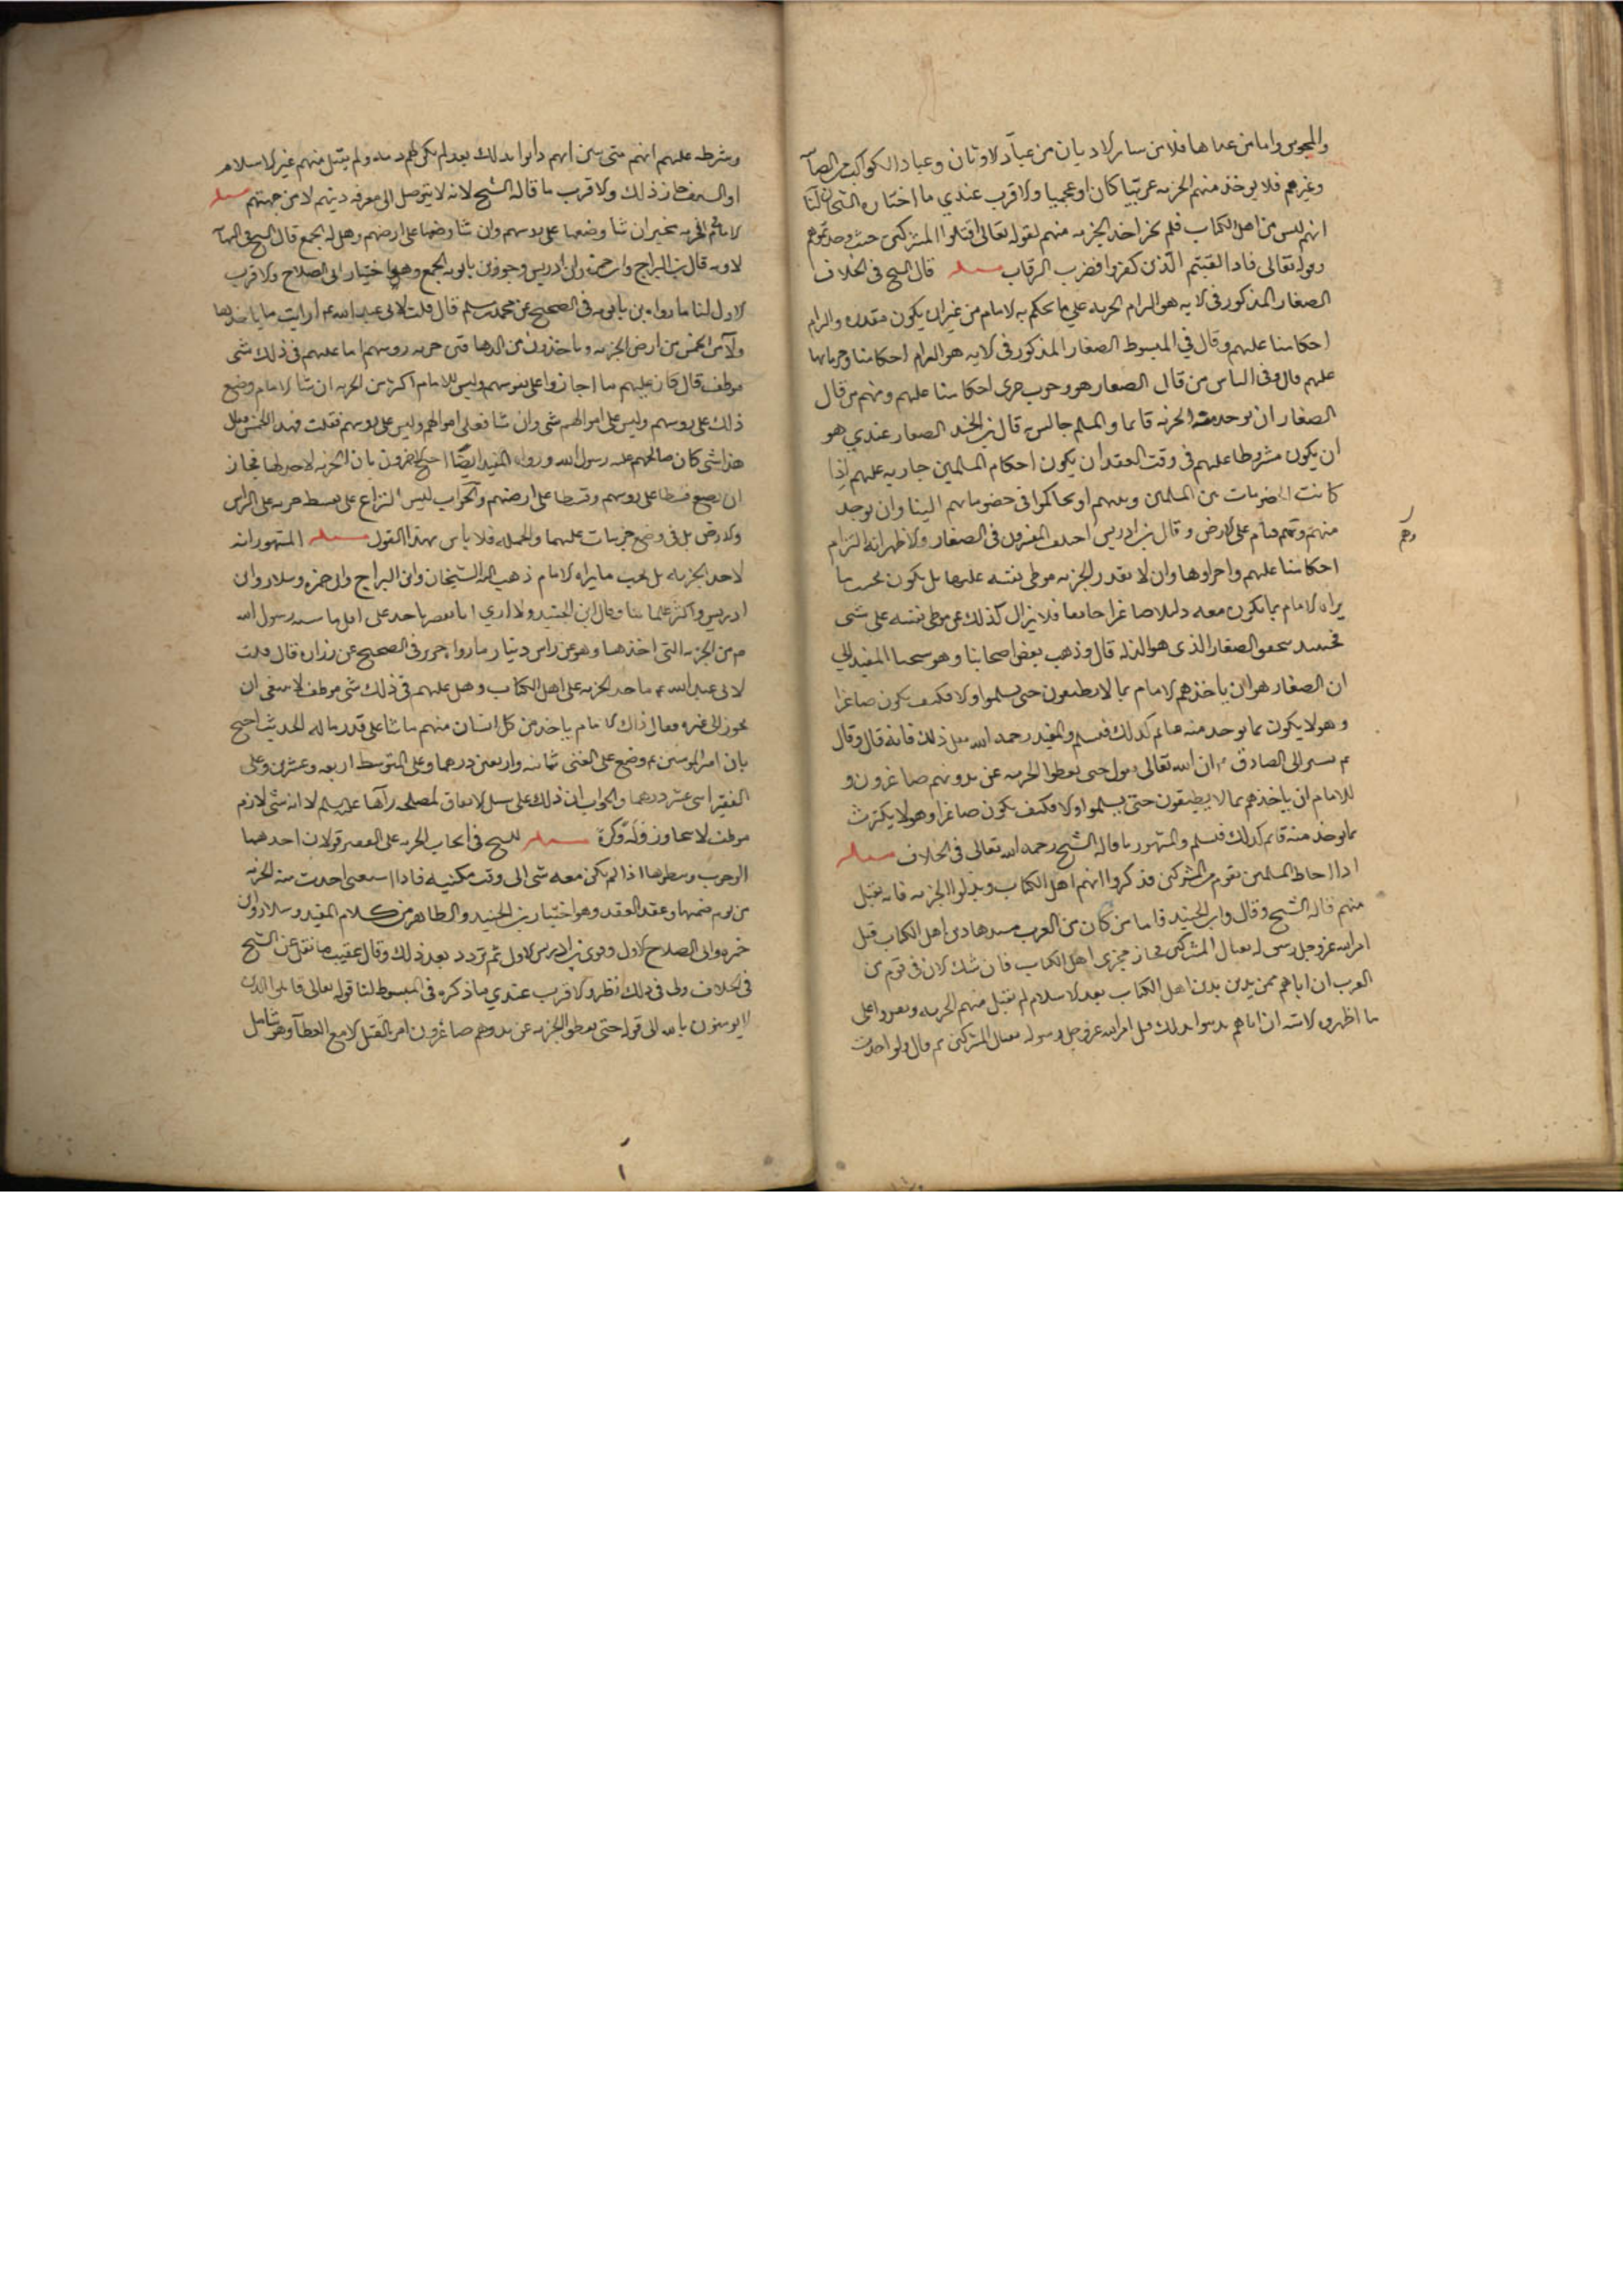 والمجوس واما من عداها فلا من سائر الاديان من عباد الاوثان وعباد الكواكب من الصا
وغيرهم فلا يوخذ منهم الجزيه عربيا كان او عجميا والاقرب عندي ما اختاره الشيخان لنا
انهم ليس من اهل الكتاب فلم يجز اخذ الجزيه منهم لقوله تعالى اقتلوا المشركين حيث وجدتموهم
وقوله تعالى فاذا لقيتم الذين كفروا فضرب الرقاب مسله قال الشيخ فى الخلاف
الصغار المذكور فى الايه هو الزام الجزيه على ما يحكم به الامام من غير ان يكون مقدره والزام
احكامنا عليهم وقال في المبسوط الصغار المذكور فى الايه هو الزام احكامنا وجريانها
عليهم قال وفى الناس من قال الصغار هو وجوب جرى احكامنا عليهم ومنهم من قال
الصغار ان يوخذ منه الجزيه قايما والمسلم جالس قال بن الجنيد الصغار عندي هو
ان يكون مشروطا عليهم فى وقت العقد ان يكون احكام المسلمين جاريه عليهم اذا
كانت الخصومات بين المسلمين وبينهم او تحاكموا فى خصوماتهم الينا وان يوخذ
منهم وهم قيام على الارض وقال بن ادريس اختلف المفسرون فى الصغار والاظهر انه التزام
احكامنا عليهم واجراوها وان لا يقدر الجزيه فيوطن نفسه عليها بل يكون بحسب ما
يراه الامام بما يكون معه ذليلا صاغرا خايفا فلا يزال كذلك غير موطن نفسه على شى
فحينئذ يتحقق الصغار الذى هو الذله قال وذهب بعض اصحابنا وهو شيخنا المفيد الى
ان الصغار هو ان ياخذهم الامام بما لا يطيقون حتى يسلموا والا فكيف يكون صاغرا
وهو لا يكترث بما يوخذ منه
للامام ان ياخذهم بما لا يطيقون حتى يسلموا والا فكيف يكون صاغرا وهو لا يكترث
بما يوخذ منه فيالم لذلك فيسلم والمشهور ما قاله الشيخ رحمه الله تعالى فى الخلاف مسله
اذا احاط المسلمين بقوم من المشركين فذكروا انهم اهل الكتاب وبذلوا الجزيه فانه يقبل
منهم قاله الشيخ وقال وابن الجنيد فاما من كان من العرب اهل الكتاب قبل
امر الله عز وجل المشركين فجاز مجزى اهل الكتاب فان شك الان فى قوم من
العرب ان اباهم ممن يدين بدين اهل الكتاب بعد الاسلام لم يقبل منهم الجزيه على
ما اظهروا قبل امر الله عز وجل رسوله بقتال المشركين ثم قال ولو اخذت
رهم
وشرط عليهم انهم متى تبين انهم دانوا بذلك بعد لم يكن لهم ذمه ولم يقبل منهم غير الاسلام
او السيف جاز ذلك والاقرب ما قاله الشيخ لانه لا يتوصل الى معرفه دينهم الا من جهتهم مسله
الامام فى الجزيه مخير ان شا وضعها على روسهم وان شا وضعها على ارضهم وهل له الجمع قال الشيخ فى النها
لا وبه قال بن البراج وابن حمزه وابن ادريس وجوز بن بابويه الجمع وهو اختيار ابى الصلاح والاقرب
الاول لنا ما رواه بن بابويه فى الصحيح عن محمد بن مسلم قال قلت لابى عبد الله ع ارايت ما ياخذ هـ
ولا من الخمس من ارض الجزيه وياخذون من الدهاقين جزيه روسهم اما عليهم فى ذلك شى
موظف قال كان عليهم ما اجازوا على نفوسهم وليس للامام اكثر من الجزيه ان شا الامام وضع
ذلك على روسهم وليس على اموالهم شى وان شا فعلى اموالهم وليس على روسهم فقلت فهذا الخمس فقال
هذا شى كان صالحهم عليه رسول الله ورواه المفيد ايضا احتج الاخرون بان الجزيه لا حد لها فجاز
ان يضع قسطا على روسهم وقسطا على ارضهم والجواب ليس النزاع على بسط جزيه على الراس
والارض بل فى وضع جزيات عليهما وبالجمله فلا باس بهذا القول مسله المشهور انه
لا حد للجزيه بل بحسب ما يراه الامام ذهب اليه الشيخان وابن البراج وابن حمزه وسلار وابن
ادريس واكثر علمائنا وقال ابن الجنيد ولا ارى اقل ما سنه رسول الله
ص من الجزيه التى اخذها وهو عن راس دينار ما رواه حريز فى الصحيح عن زراره قال قلت
لابى عبد الله ع ما حد الجزيه على اهل الكتاب وهل عليهم فى ذلك شى موظف لا ينبغى ان
يجوز الى غيره فقال ذاك الى الامام ياخذ من كل انسان منهم ما شا على قدر ماله الحديث احتج
بان امير المومنين ع وضع على الغنى ثمانيه واربعين درهما وعلى المتوسط اربعه وعشرين وعلى
الفقير اثنى عشر درهما والجواب ان ذلك على سبيل الاتفاق لمصلحه رآها عليه السلم لا انه شى لازم
موظف لا يجاوز قله وكثرة مسله للشيخ فى ايجاب الجزيه على الفقير قولان احدهما
الوجوب وينظر بها اذا لم يكن معه شى الى وقت مكنته فاذا استغنى اخذت منه الجزيه
من يوم ضمنها وعقد العقد وهو اختيار بن الجنيد والظاهر من كلام المفيد وسلار وابن
حمزه وابى الصلاح الاول وقوى بن ادريس الاول ثم تردد بعد ذلك وقال عقيب ما نقل عن الشيخ
فى الخلاف ولى فى ذلك نظر والاقرب عندي ما ذكره فى المبسوط لنا قوله تعالى قاتلوا الذين
لا يومنون بالله الى قوله حتى يعطوا الجزيه عن يد وهم صاغرون امر بالقتل الا مع العطآ وهو شامل